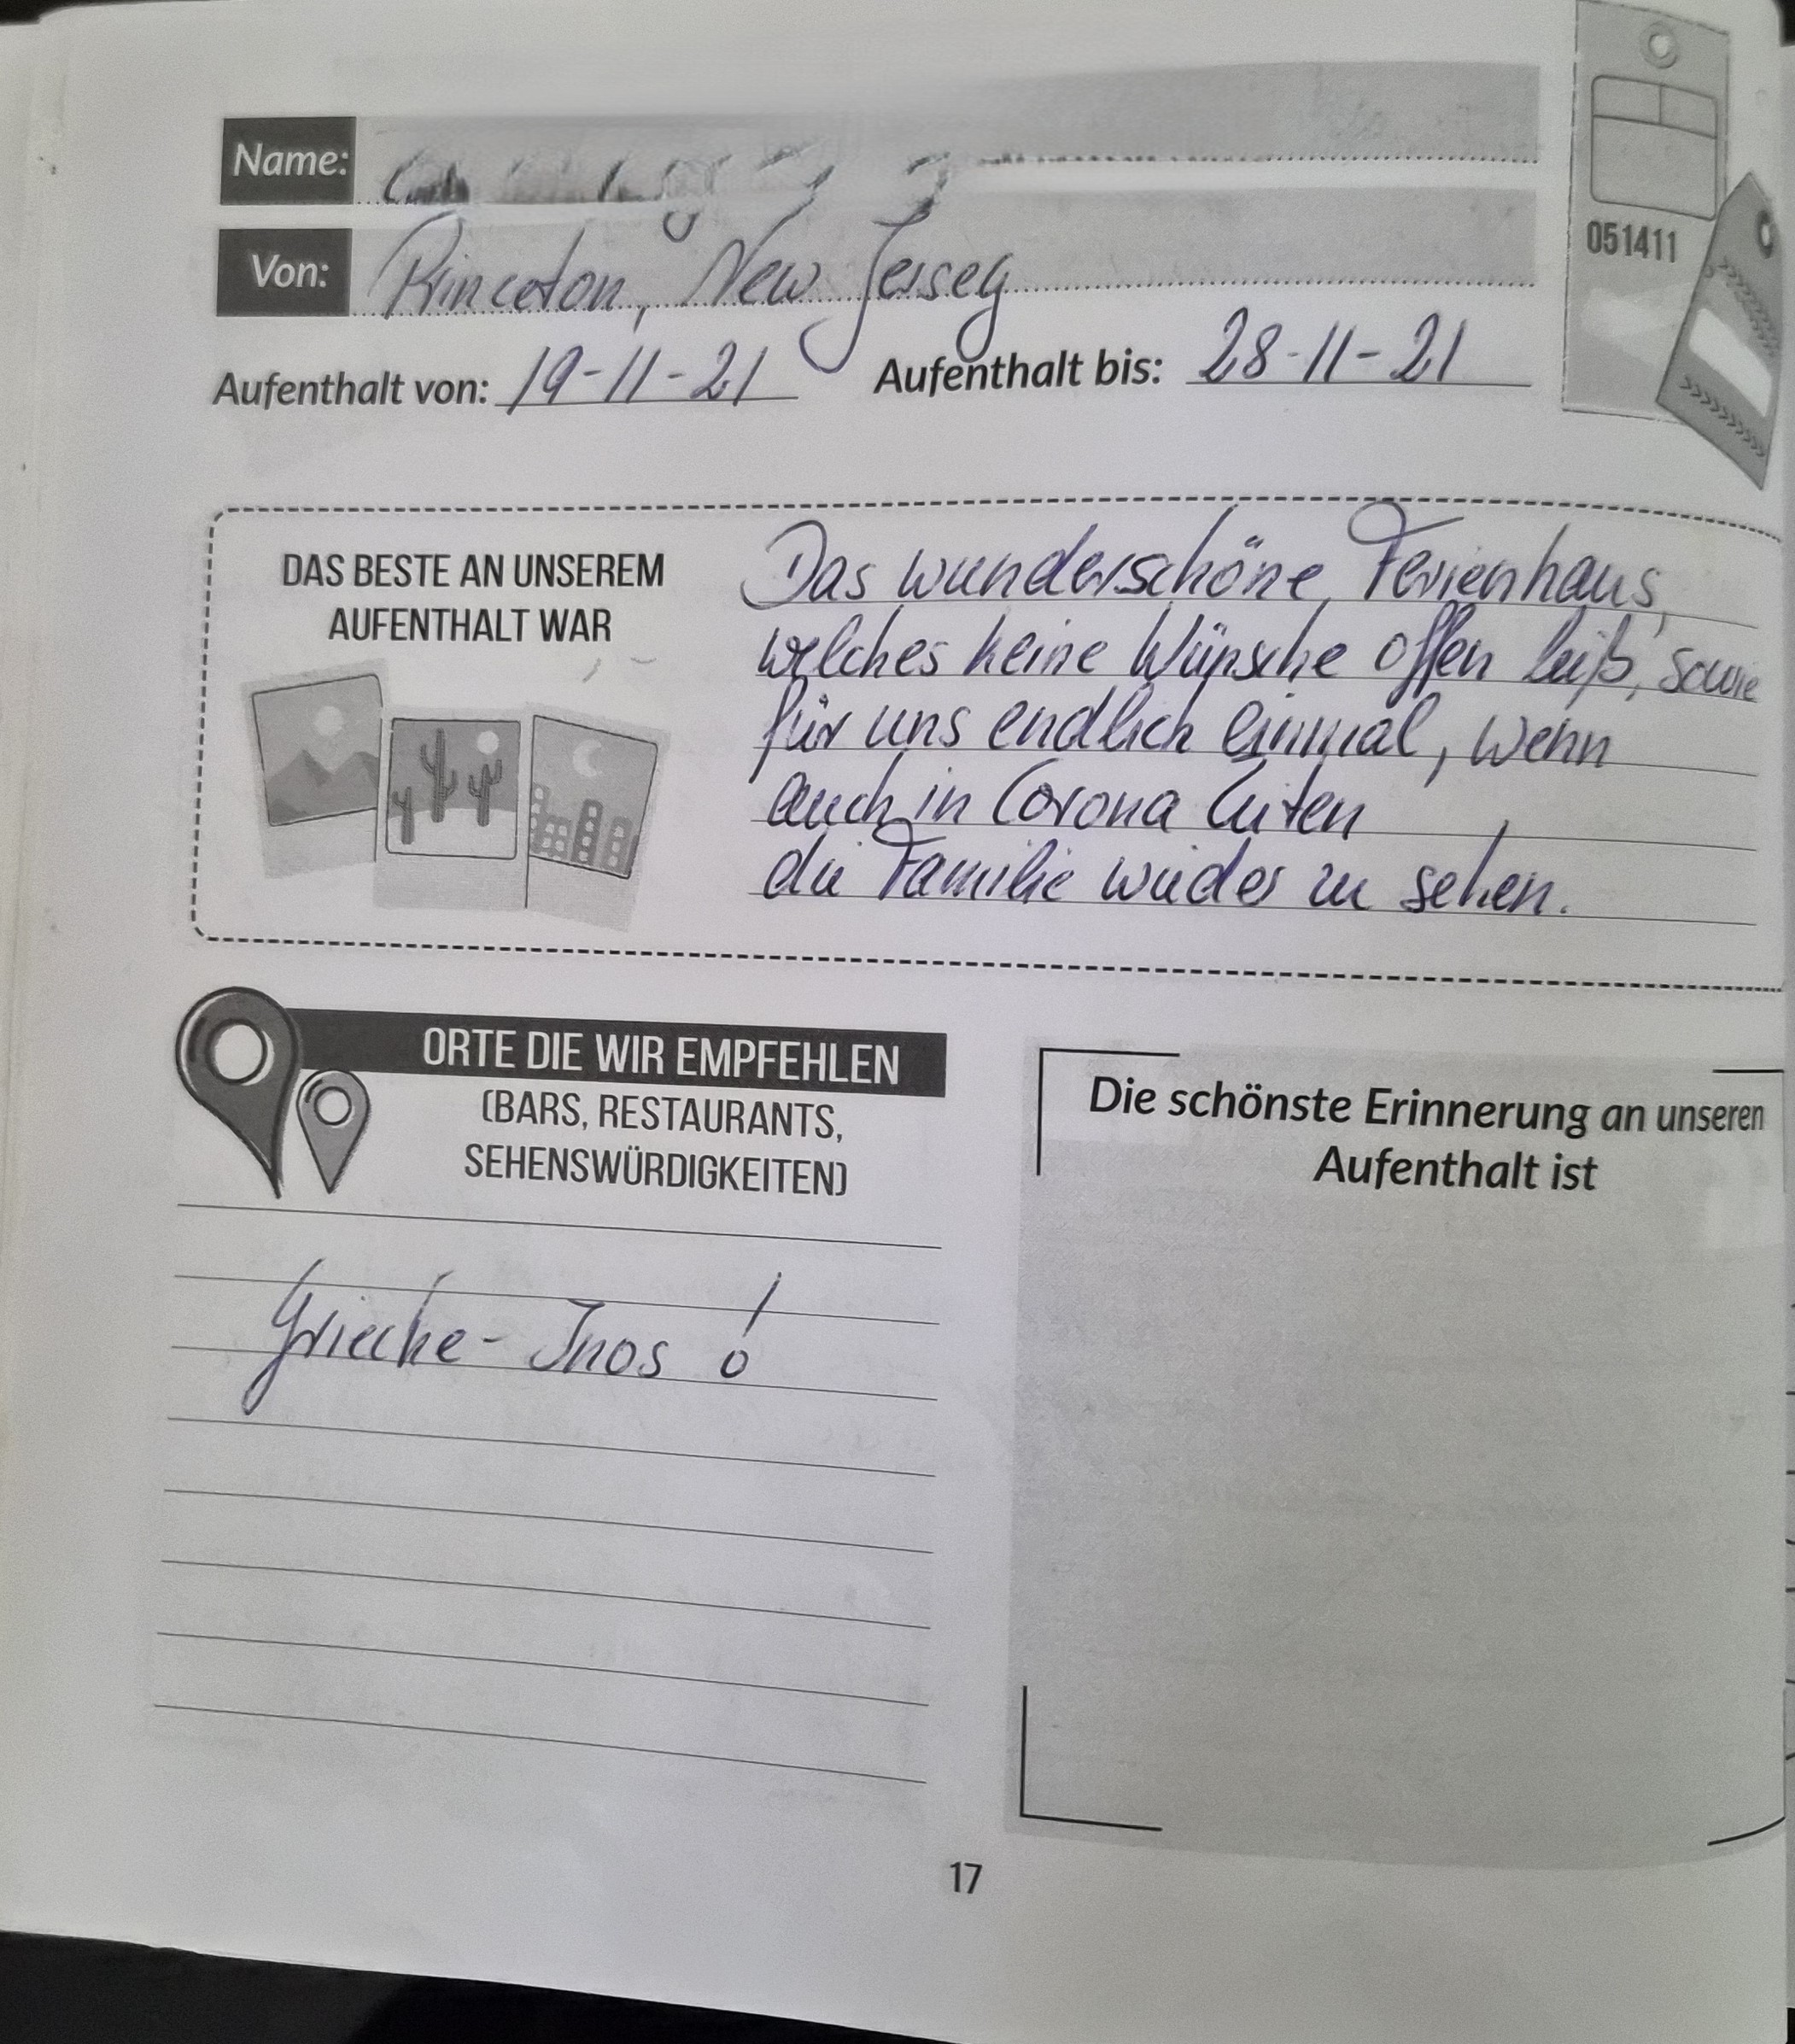 Name:
Von: Princeton, New Jersey
Aufenthalt von: 19-11-21 Aufenthalt bis: 28-11-21
051411
DAS BESTE AN UNSEREM
AUFENTHALT WAR
Das wunderschöne Ferienhaus,
welches keine Wünsche offen ließ, sowie
für uns endlich einmal, wenn
auch in Corona Zeiten
die Familie wieder zu sehen.
ORTE DIE WIR EMPFEHLEN
(BARS, RESTAURANTS,
SEHENSWÜRDIGKEITEN)
Grieche- Inos!
Die schönste Erinnerung an unseren
Aufenthalt ist
17